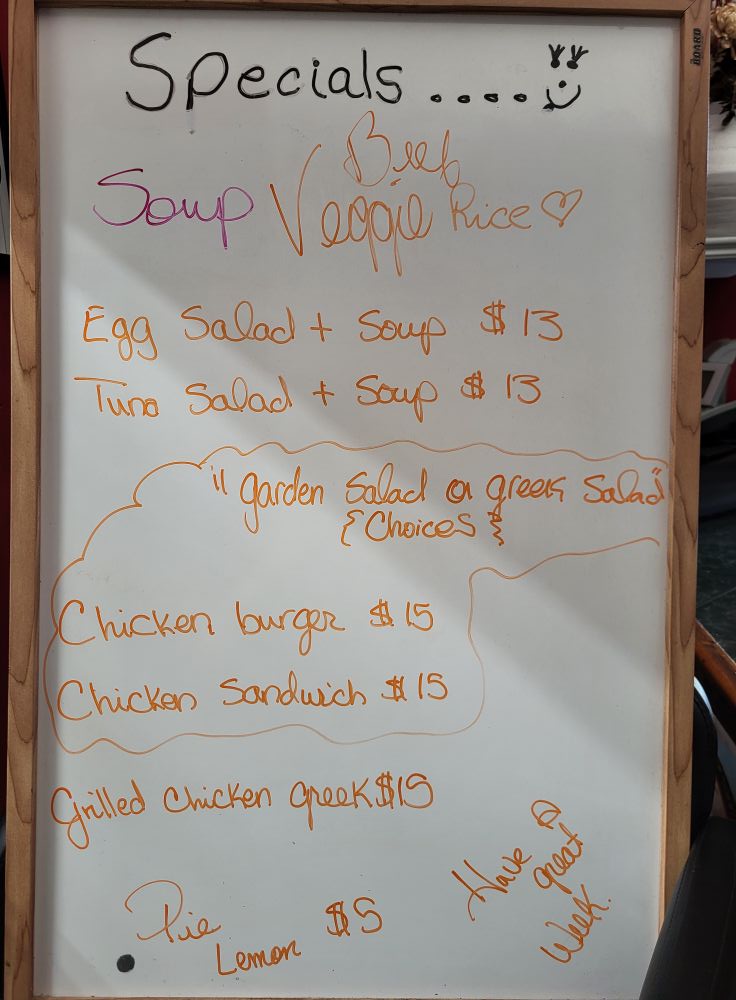 Specials ....
Beef
Soup Veggie Rice ♡
Egg Salad + Soup $13
Tuna Salad + Soup $13
"garden Salad or greek Salad"
{Choices}
Chicken burger $15
Chicken Sandwich $15
Grilled Chicken greek $15
Pie $5
Lemon
Have a
great
Week.
BOARD